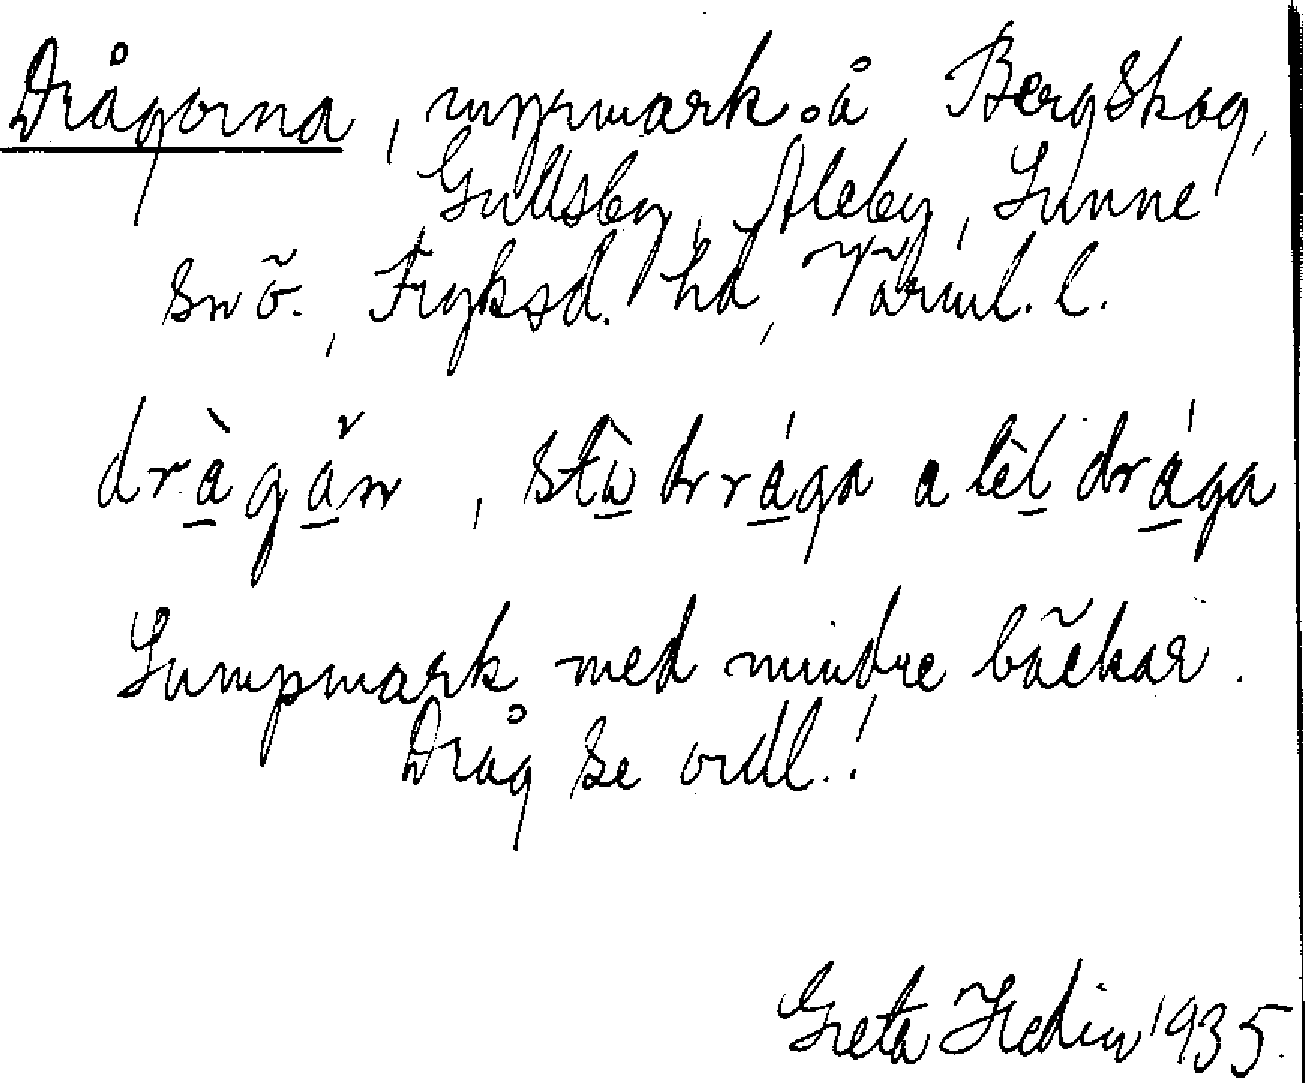 Drågorna, myrmark å Bergskog,
Gullsby, Åleby, Sunne
snö., Fryksd. hd, Värml. l.
dràgǎn, stù drága a lèl drága
Sumpmark med mindre bäckar.
Dråg se ordl.!
Greta Hedin 1935.